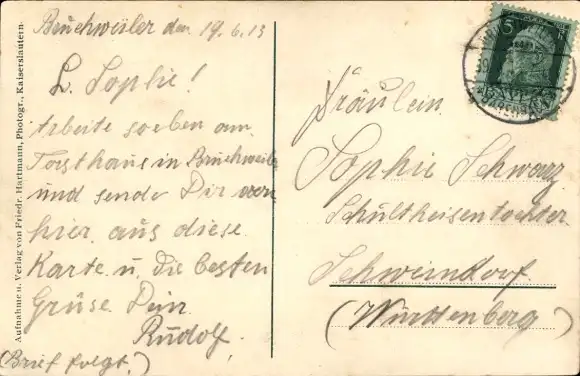 Bruchweiler den 19.6.13
L. Sophie!
Arbeite soeben am
Forsthaus in Bruchweiler
und sende Dir von
hier aus diese
Karte u. die besten
Grüse Dein
Rudolf
(Brief folgt.)
Aufnahme u. Verlag von Friedr. Hartmann, Photogr., Kaiserslautern.
5
BAYERN
Fräulein
Sophie Schwarz
Schultheisentochter
Schweindorf
(Württenberg)